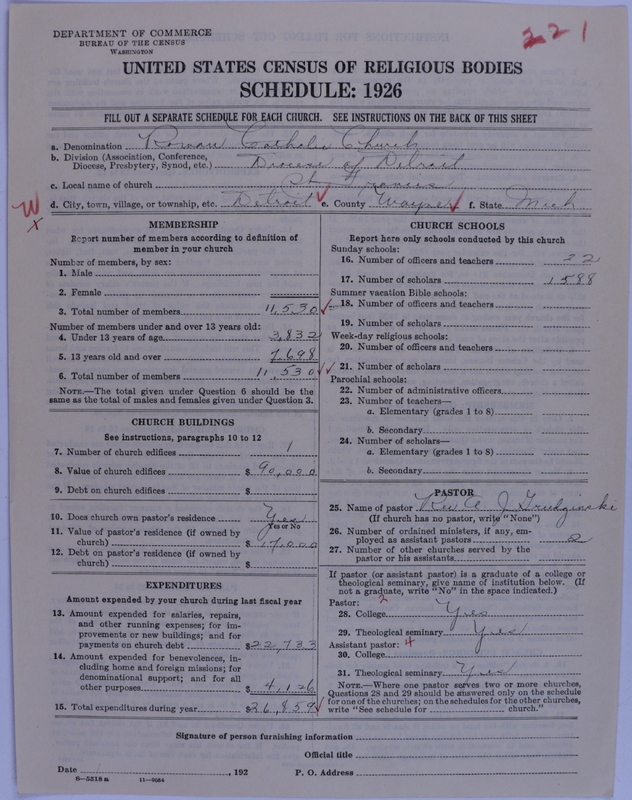 DEPARTMENT OF COMMERCE
BUREAU OF THE CENSUS
WASHINGTON
221
UNITED STATES CENSUS OF RELIGIOUS BODIES
SCHEDULE: 1926
FILL OUT A SEPARATE SCHEDULE FOR EACH CHURCH. SEE INSTRUCTIONS ON THE BACK OF THIS SHEET
a. Denomination Roman Catholic Church
b. Division (Association, Conference, Diocese, Presbytery, Synod, etc.) Diocese of Detroit
c. Local name of church St Francis
W x d. City, town, village, or township, etc. Detroit ✓ e. County Wayne ✓ f. State Mich
MEMBERSHIP
Report number of members according to definition of
member in your church
Number of members, by sex:
1. Male
2. Female
3. Total number of members 11,530 ✓
Number of members under and over 13 years old:
4. Under 13 years of age 3,832
5. 13 years old and over 7,698
6. Total number of members 11,530 ✓✓
NOTE.—The total given under Question 6 should be
same as the total of males and females given under Question 3.
CHURCH BUILDINGS
See instructions, paragraphs 10 to 12
7. Number of church edifices 1
8. Value of church edifices $ 90,000
9. Debt on church edifices $
10. Does church own pastor's residence Yes
Yes or No
11. Value of pastor's residence (if owned by
church) $ 17,000
12. Debt on pastor's residence (if owned by
church) $
EXPENDITURES
Amount expended by your church during last fiscal year
13. Amount expended for salaries, repairs,
and other running expenses; for im-
provements or new buildings; and for
payments on church debt $ 22,733
14. Amount expended for benevolences, in-
cluding home and foreign missions; for
denominational support; and for all
other purposes $ 4,126
15. Total expenditures during year $ 26,859 ✓
CHURCH SCHOOLS
Report here only schools conducted by this church
Sunday schools:
16. Number of officers and teachers 22
17. Number of scholars 1588
Summer vacation Bible schools:
18. Number of officers and teachers
19. Number of scholars
Week-day religious schools:
20. Number of officers and teachers
21. Number of scholars
Parochial schools:
22. Number of administrative officers
23. Number of teachers—
a. Elementary (grades 1 to 8)
b. Secondary
24. Number of scholars—
a. Elementary (grades 1 to 8)
b. Secondary
PASTOR
25. Name of pastor Rev A J Grudzinski
(If church has no pastor, write "None")
26. Number of ordained ministers, if any, em-
ployed as assistant pastors 2
27. Number of other churches served by the
pastor or his assistants
If pastor (or assistant pastor) is a graduate of a college or
theological seminary, give name of institution below. (If
not a graduate, write "No" in the space indicated.)
Pastor: 2
28. College Yes
29. Theological seminary Yes
Assistant pastor: 4
30. College
31. Theological seminary Yes
NOTE.—Where one pastor serves two or more churches,
Questions 28 and 29 should be answered only on the schedule
for one of the churches; on the schedules for the other churches,
write "See schedule for church."
Signature of person furnishing information
Official title
Date , 192 P. O. Address
8—5518 a 11—9084